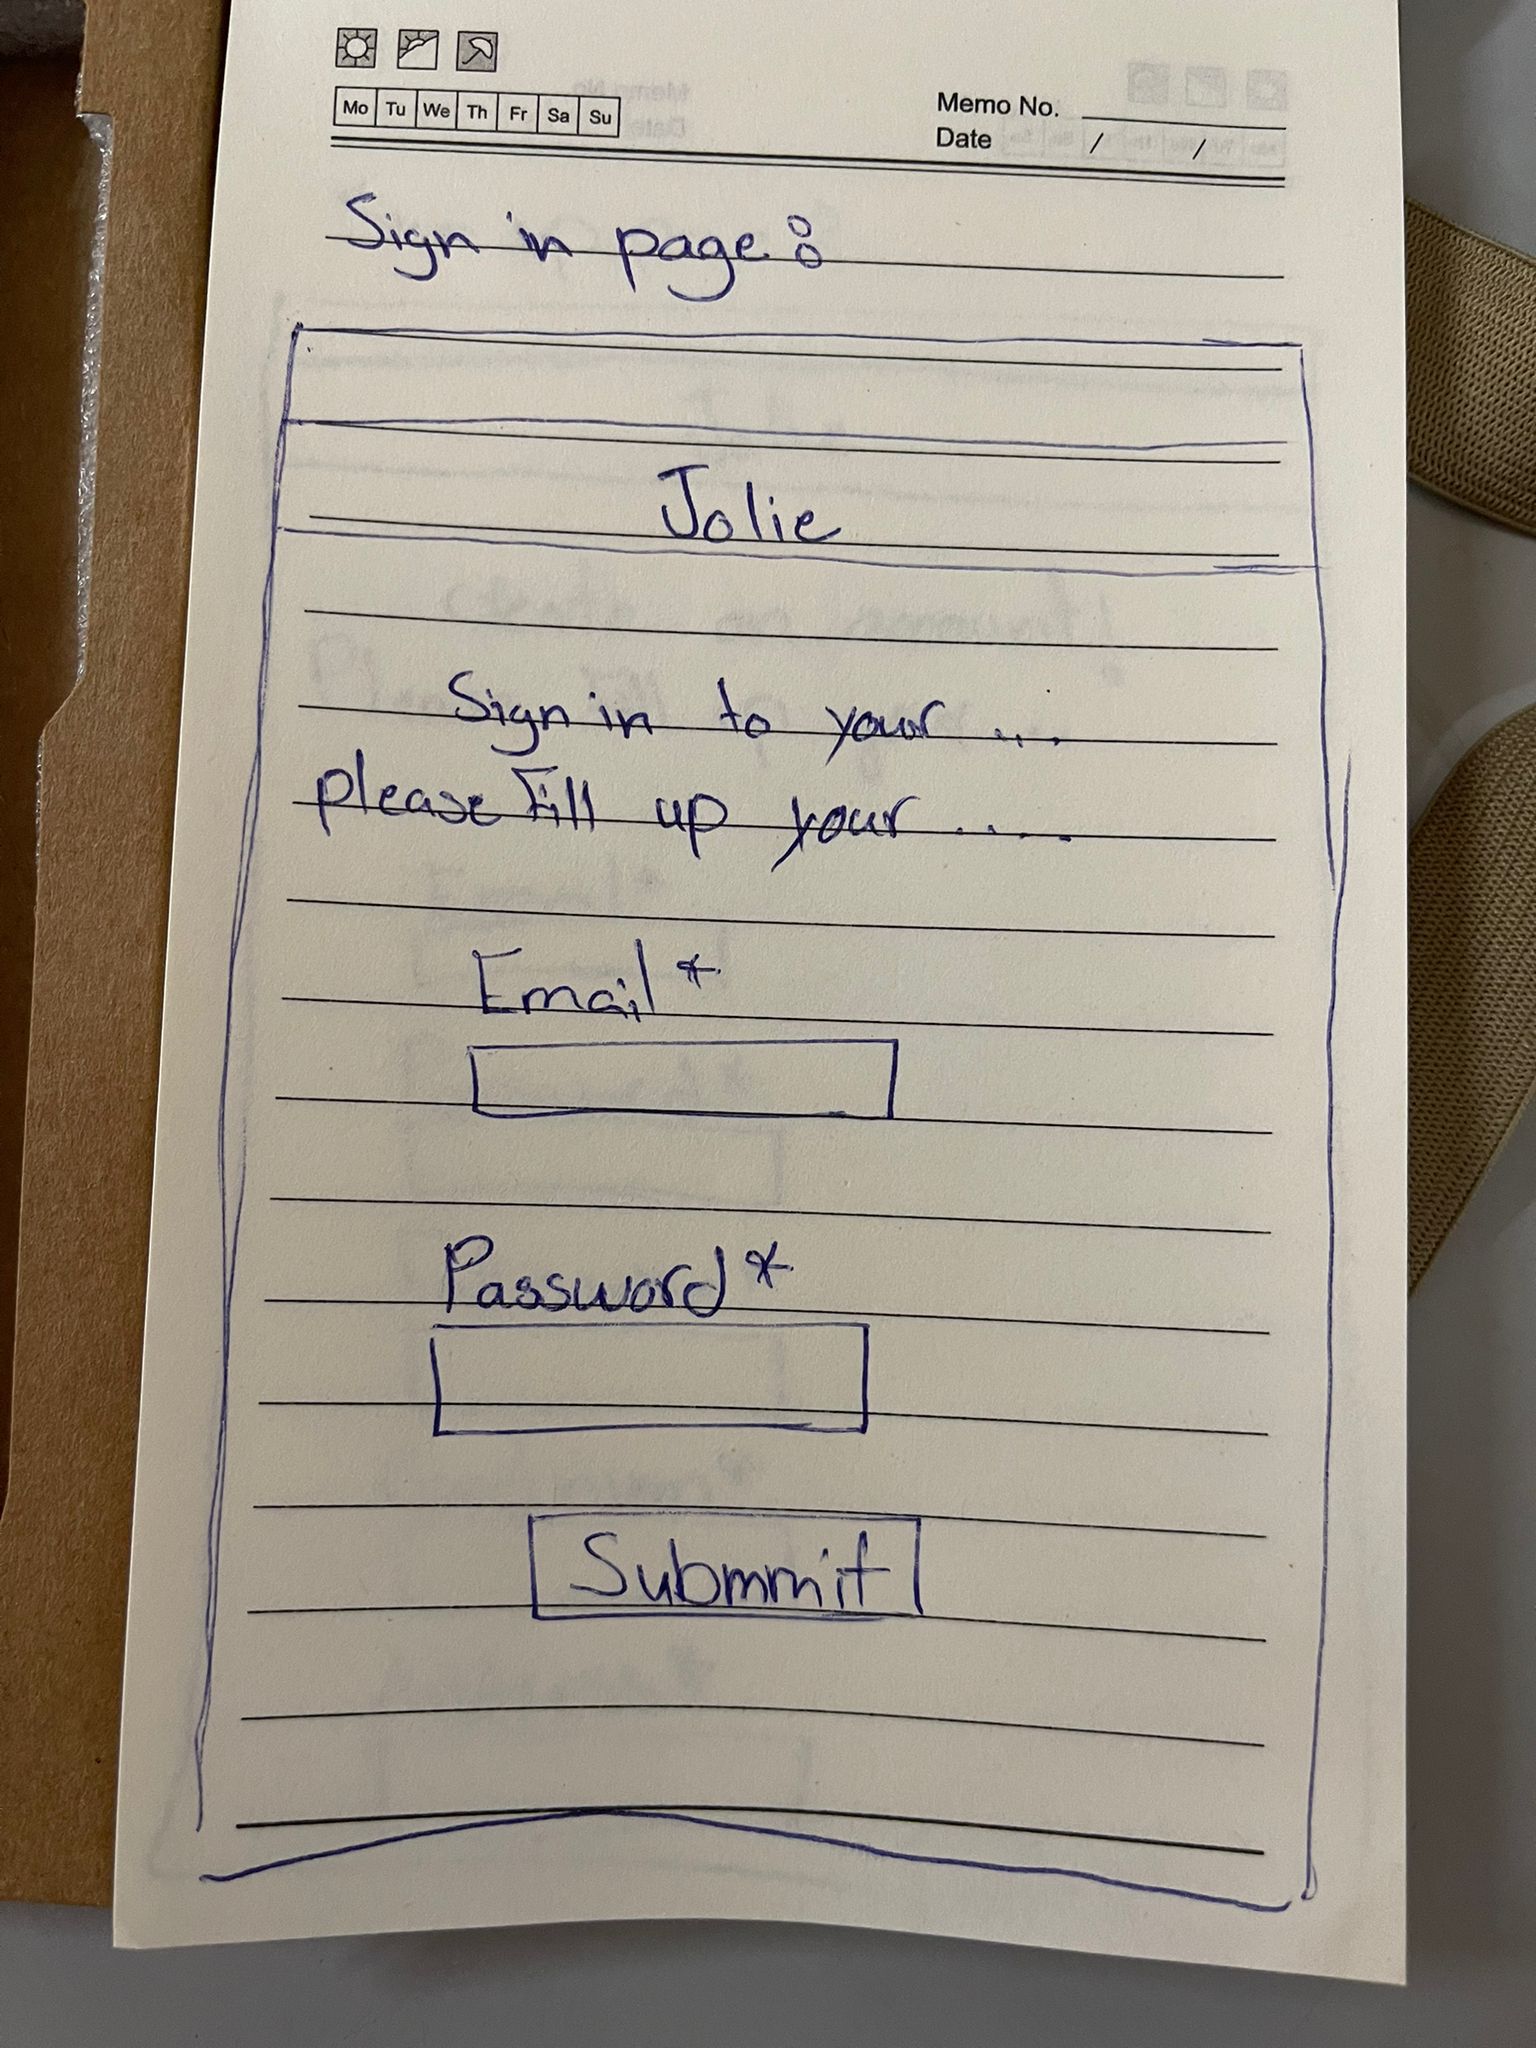 Mo Tu We Th Fr Sa Su
Memo No.
Date / /
Sign in page:
Jolie
Sign in to your ...
please Fill up your .....
Email *
Password *
Submmit